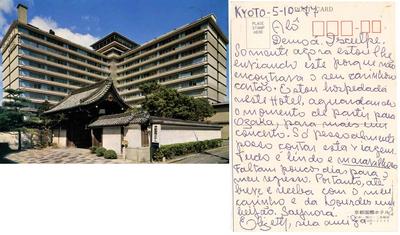 KYOTO-5-10-77
PLACE
STAMP
HERE
Alô
Demoá. Disculpe.
Somente agora estou lhe
enviando este porque não
encontrava o seu carinhoso
cartão. Estou hospedada
neste Hotel, aguardando
o momento de partir para
Osaka, para mais um
concerto. Só pessoalmente
posso contar esta viagem.
Tudo é lindo e maravilhoso.
Faltam poucos dias para o
meu regresso. Portanto, até
breve e receba com o meu
carinho e da Lourdes um
beijão. Sayonara.
Elizeth, sua amiga
京都国際ホテル